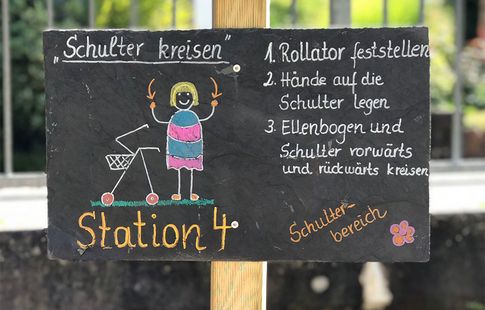 „Schulter kreisen"
Station 4
1. Rollator feststellen
2. Hände auf die
Schulter legen
3. Ellenbogen und
Schulter vorwärts
und rückwärts kreisen
Schulter-
bereich